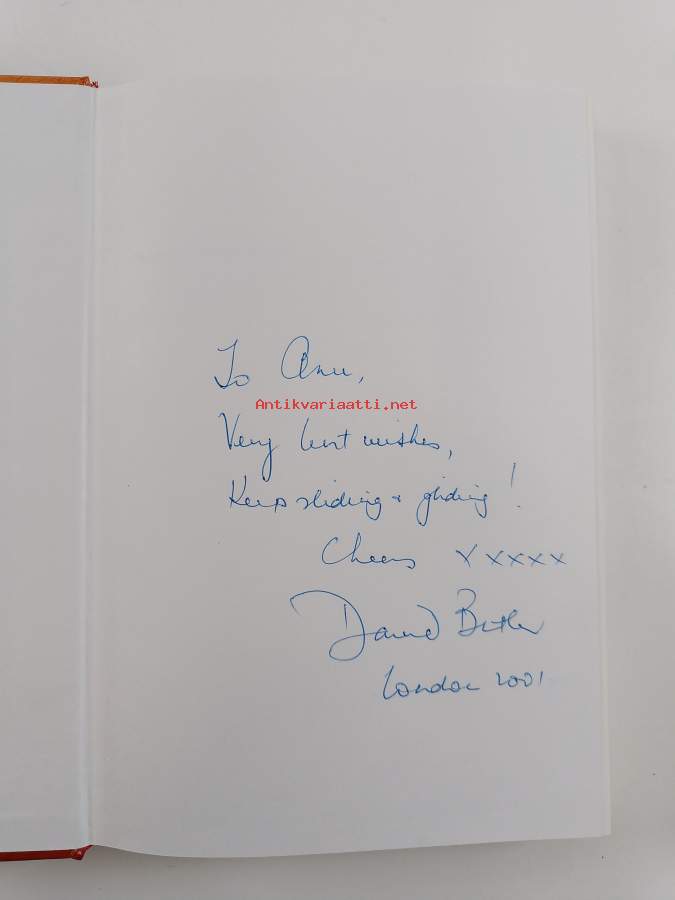 To Anu,
Antikvariaatti.net
Very best wishes,
Keep sliding + gliding!
Cheers xxxxxx
David Butler
London 2001